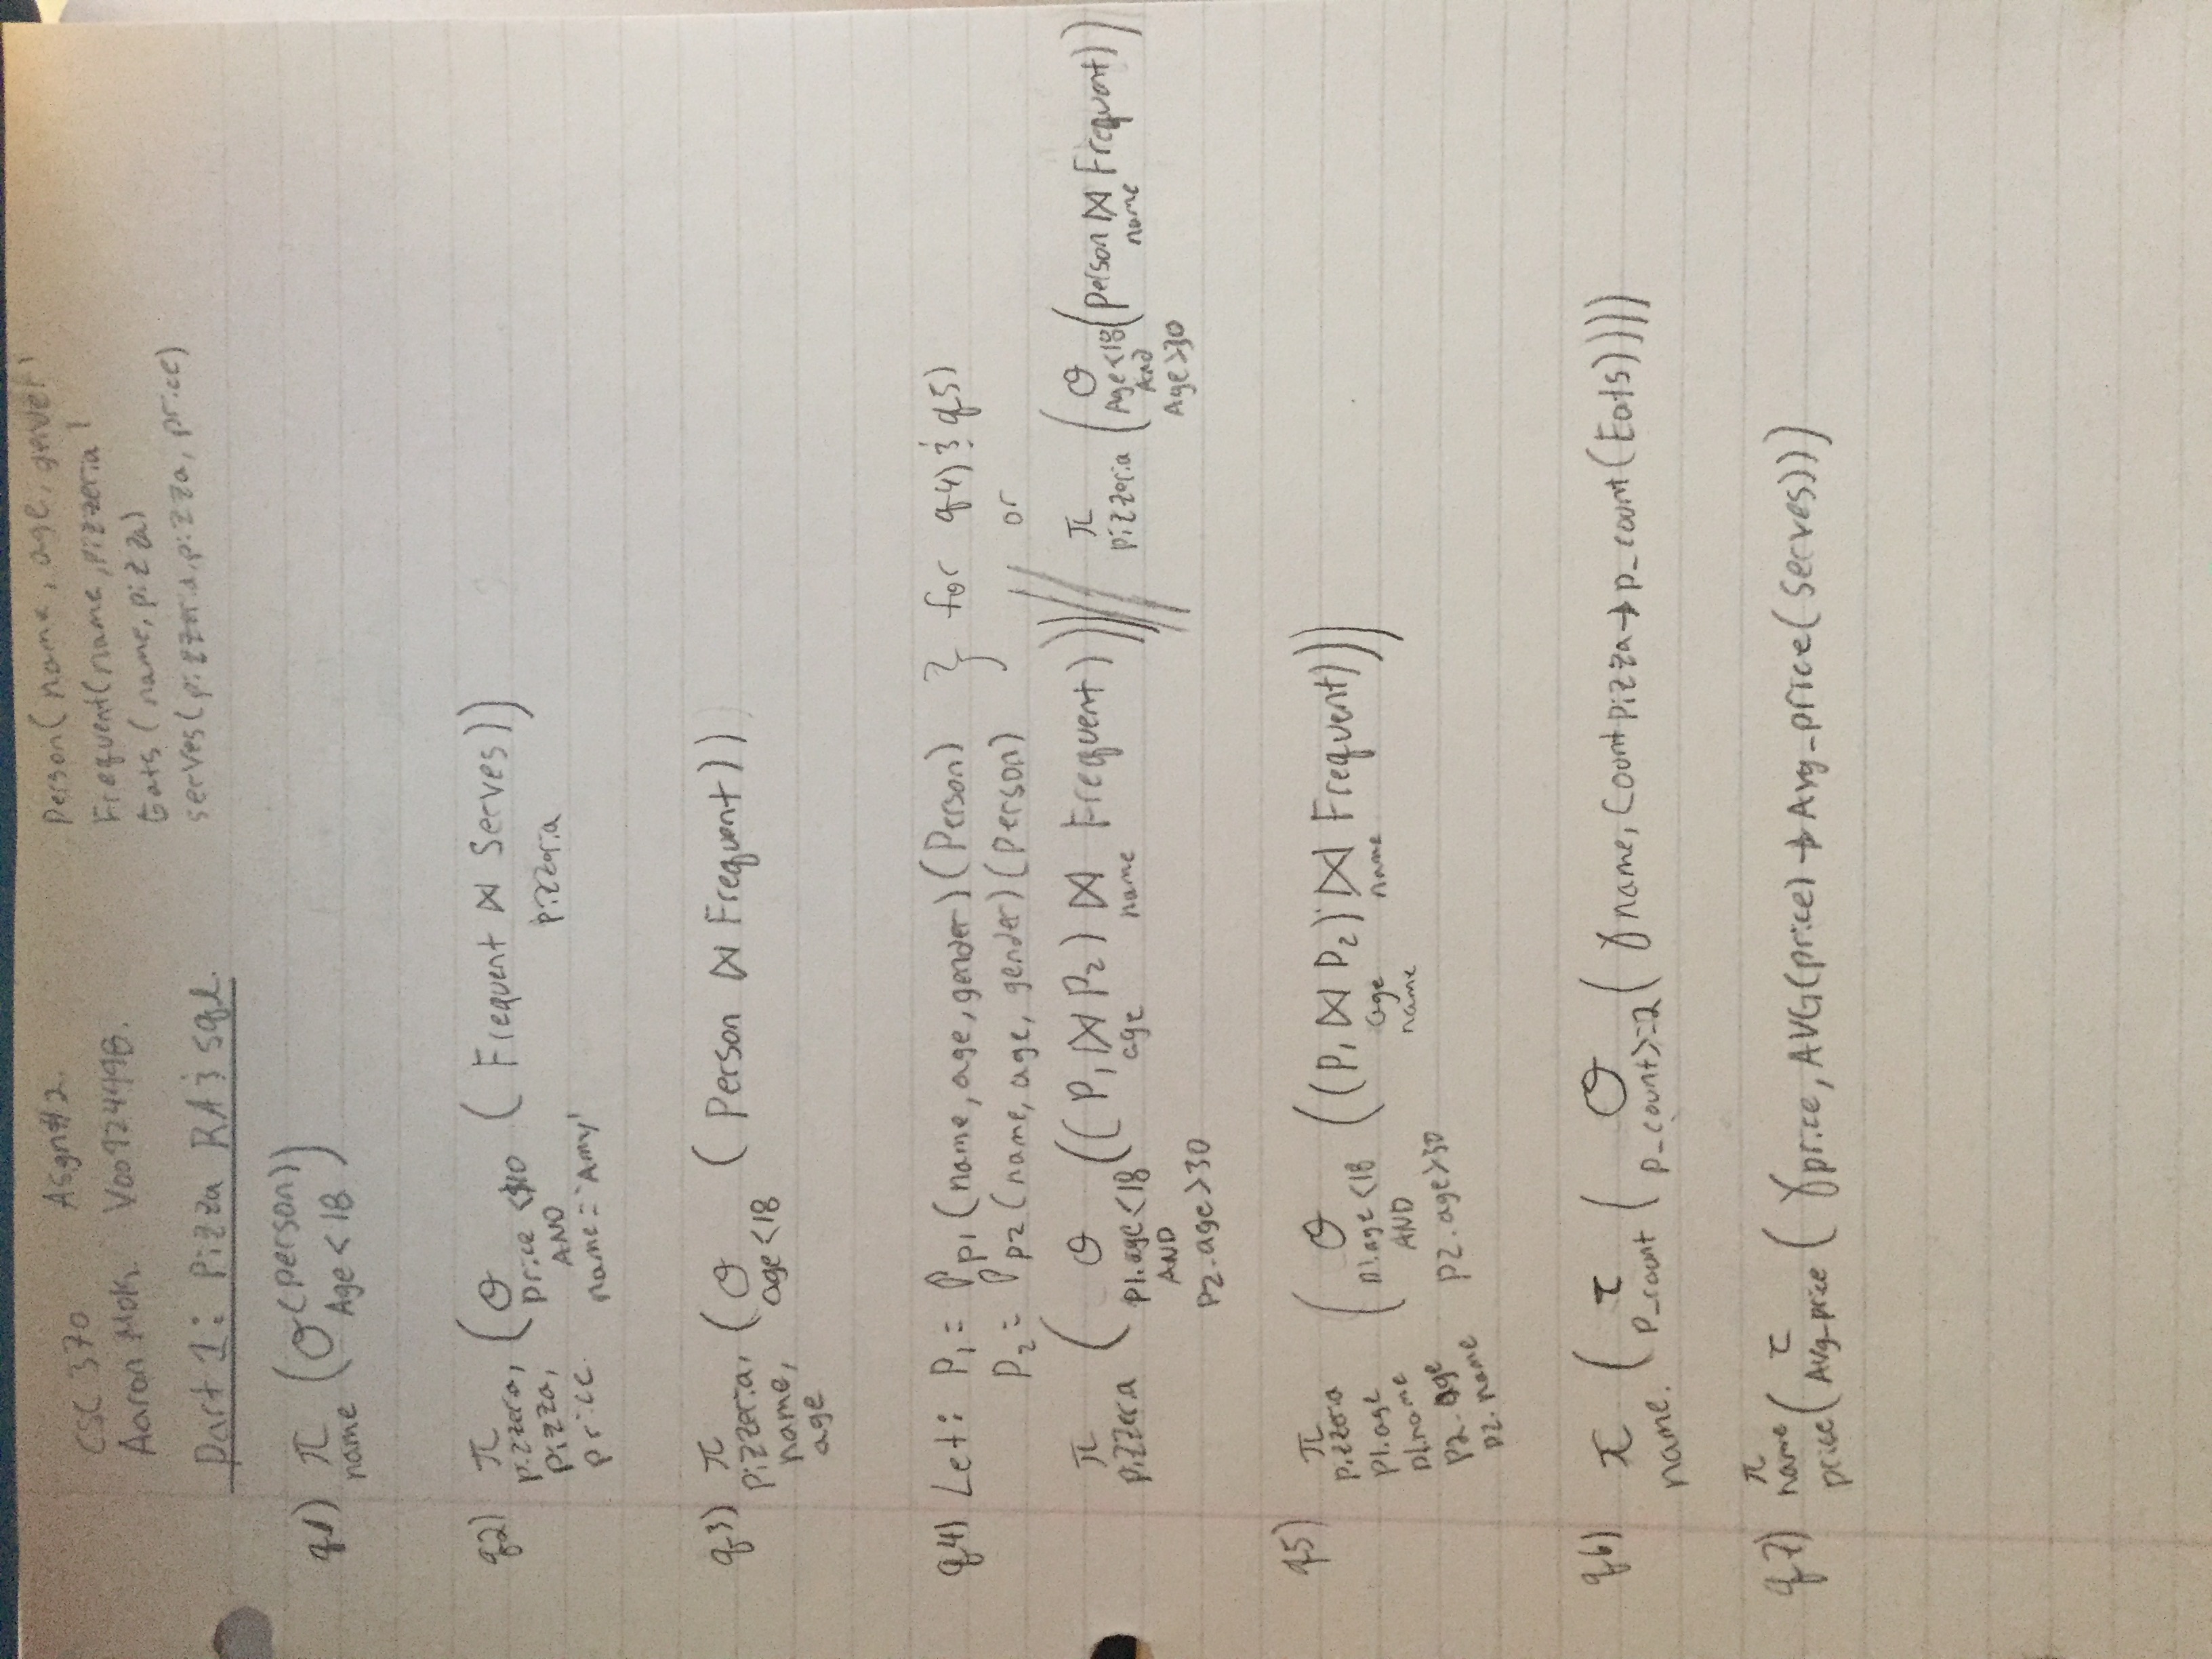 CSC 370 Asgn#2.
Aaron Mok V00924498.
Person(name, age, gender)
Frequent(name, pizzeria)
Eats (name, pizza)
serves(pizzeria, pizza, price)
Part 1: Pizza RA & sql.
q1) π name (σ(person) Age<18)
q2) π pizzeria, pizza, price. (σ price <$10 AND name='Amy' ( Frequent ⋈ Serves)) pizzeria
q3) π pizzeria, name, age (σ age<18 ( Person ⋈ Frequent))
q4) Let: P₁ = ρ p1 (name, age, gender)(Person) } for q4) & q5)
P₂ = ρ p2 (name, age, gender)(Person)
π pizzeria ( σ p1.age<18 AND P2.age>30 (( P₁ ⋈ age P₂) ⋈ name Frequent))) // or π pizzeria (σ Age<18 And Age>30 (person ⋈ name Frequent))
q5) π pizzeria p1.age p1.name P2.age p2.name ( σ p1.age<18 AND p2.age>30 ((P₁ ⋈ age name P₂) ⋈ name Frequent)))
q6) π name. ( τ p_count ( σ p_count>=2 ( γ name, Count pizza→p_count(Eats))))
q7) π name price( τ Avg_price ( γ price, AVG(price)→Avg_price(Serves)))